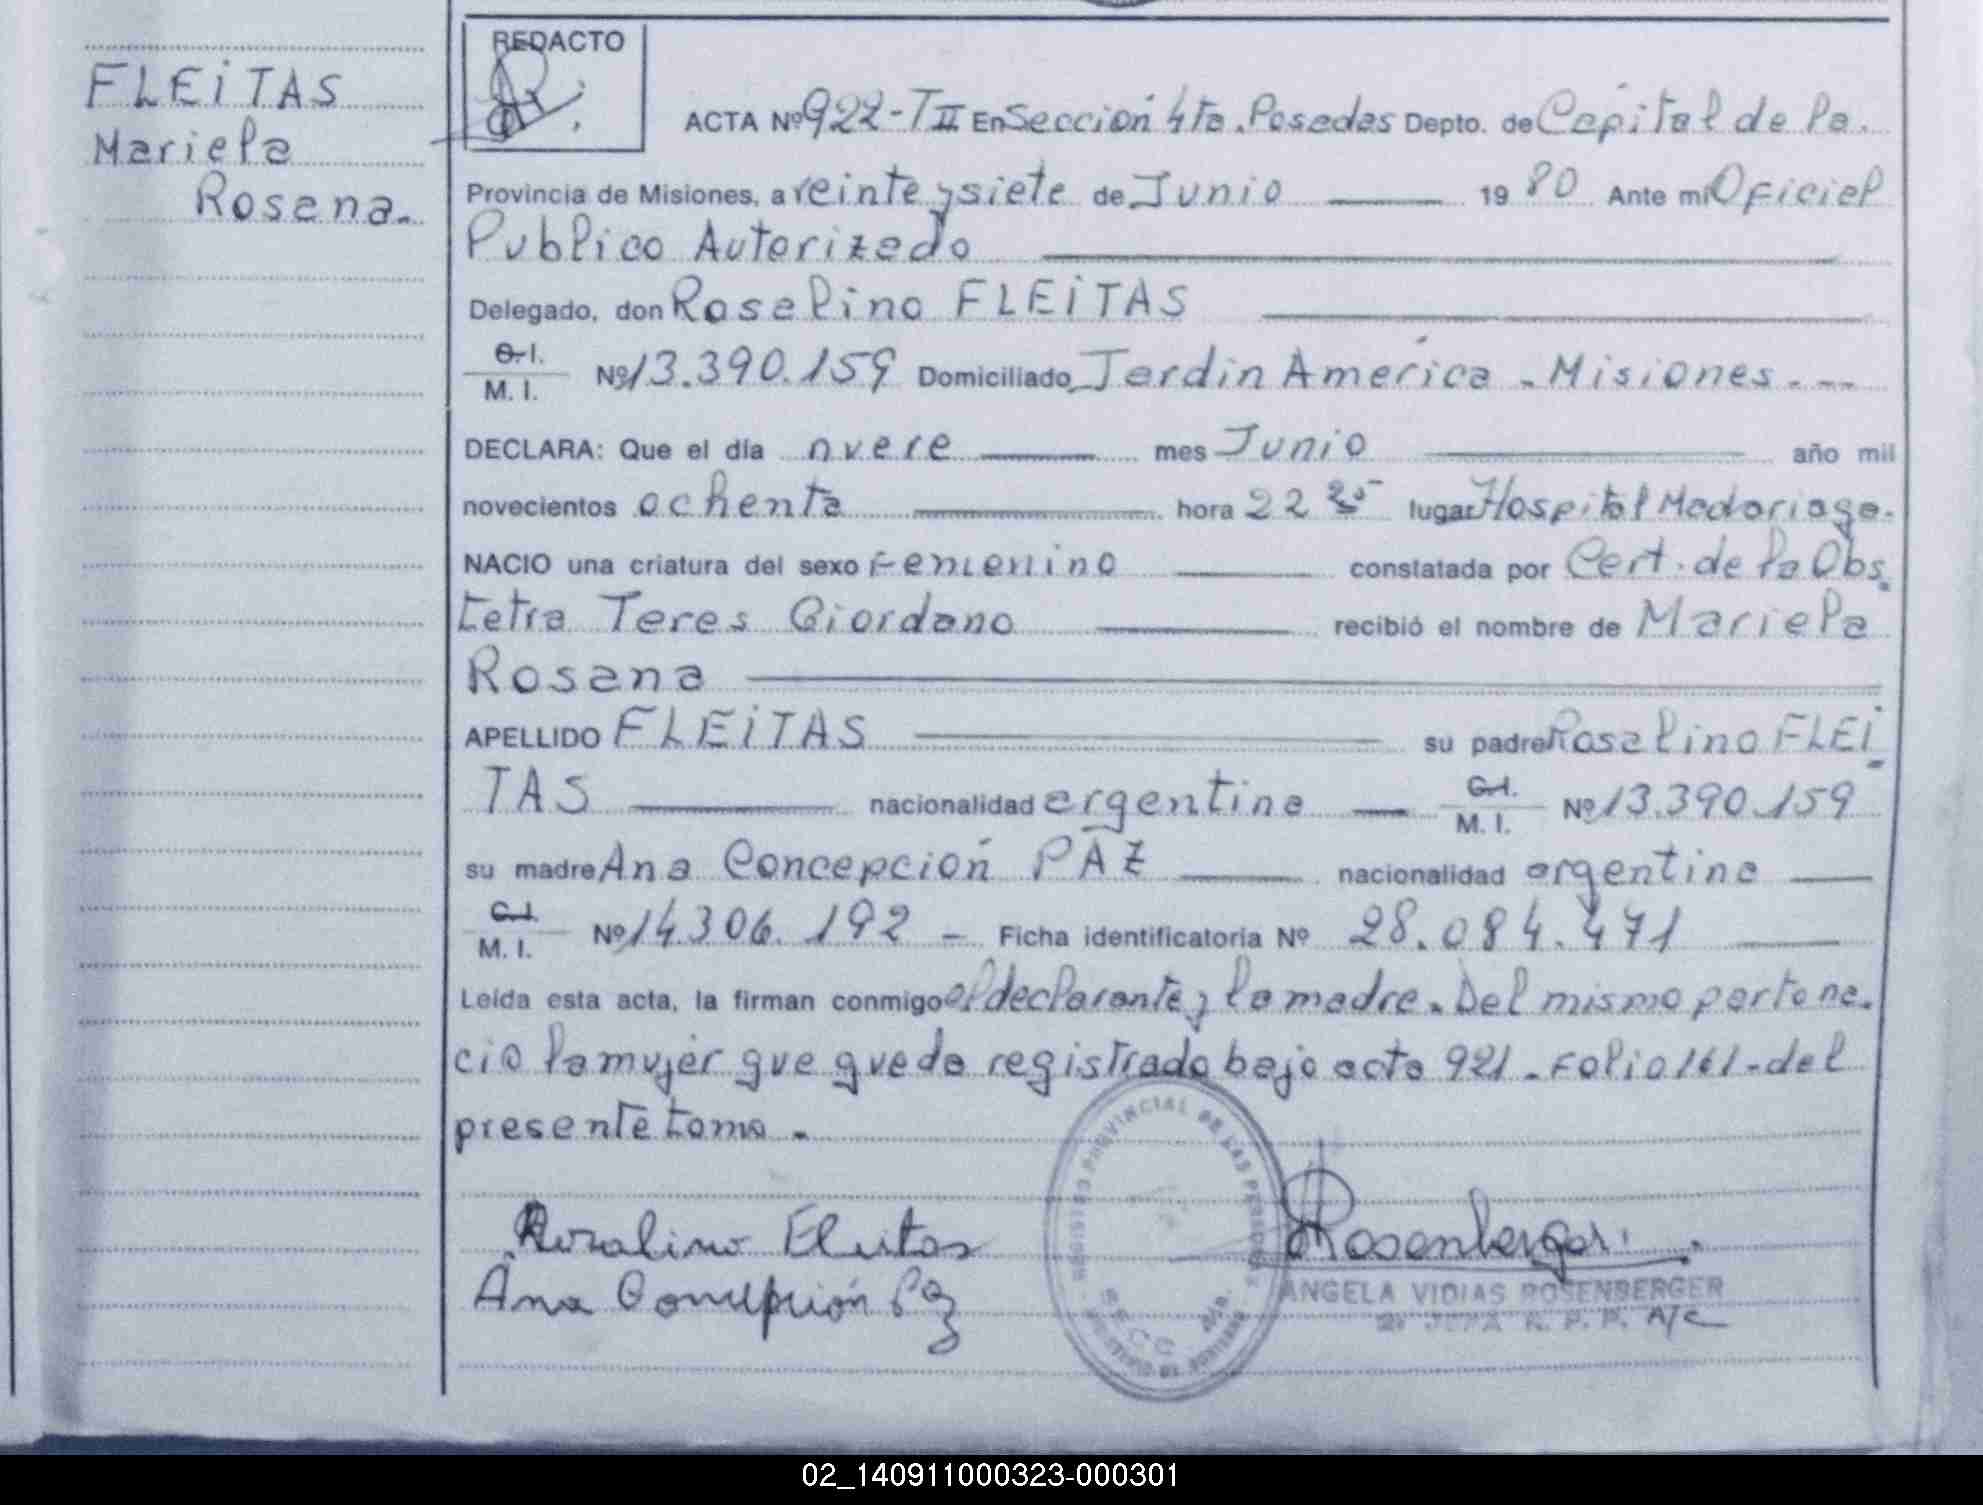 FLEiTAS
Mariela
Rosana.
REDACTO
ACTA Nº 922-TII En Sección 4ta. Posadas Depto. de Capital de la.
Provincia de Misiones, a veinte y siete de Junio 1980 Ante mí Oficial
Publico Autorizado
Delegado, don Roselino FLEiTAS
C.I.
M. I. Nº 13.390.159 Domiciliado Jardin América - Misiones. ---
DECLARA: Que el día nueve mes Junio año mil
novecientos ochenta hora 22 lugar Hospital Madariaga.
NACIO una criatura del sexo Femenino constatada por Cert. de la Obs.
tetra Teres Giordano recibió el nombre de Mariela
Rosana
APELLIDO FLEiTAS su padre Roselino FLEi-
TAS nacionalidad argentina C.I.
M. I. Nº 13.390.159
su madre Ana Concepción PAZ nacionalidad argentina
C.I.
M. I. Nº 14.306.192 - Ficha identificatoria Nº 28.084.471
Leída esta acta, la firman conmigo el declarante y la madre. Del mismo parto na-
cio la mujer que queda registrada bajo acta 921 - Folio 161 - del
presente tomo.
REGISTRO PROVINCIAL DE LAS PERSONAS
SECC. 4ta.
Rosalino Fleitas
Ana Concepción Paz
Rosenberger
ANGELA VIDIAS ROSENBERGER
2ª JEFA R. P. P. A/C
02_140911000323-000301